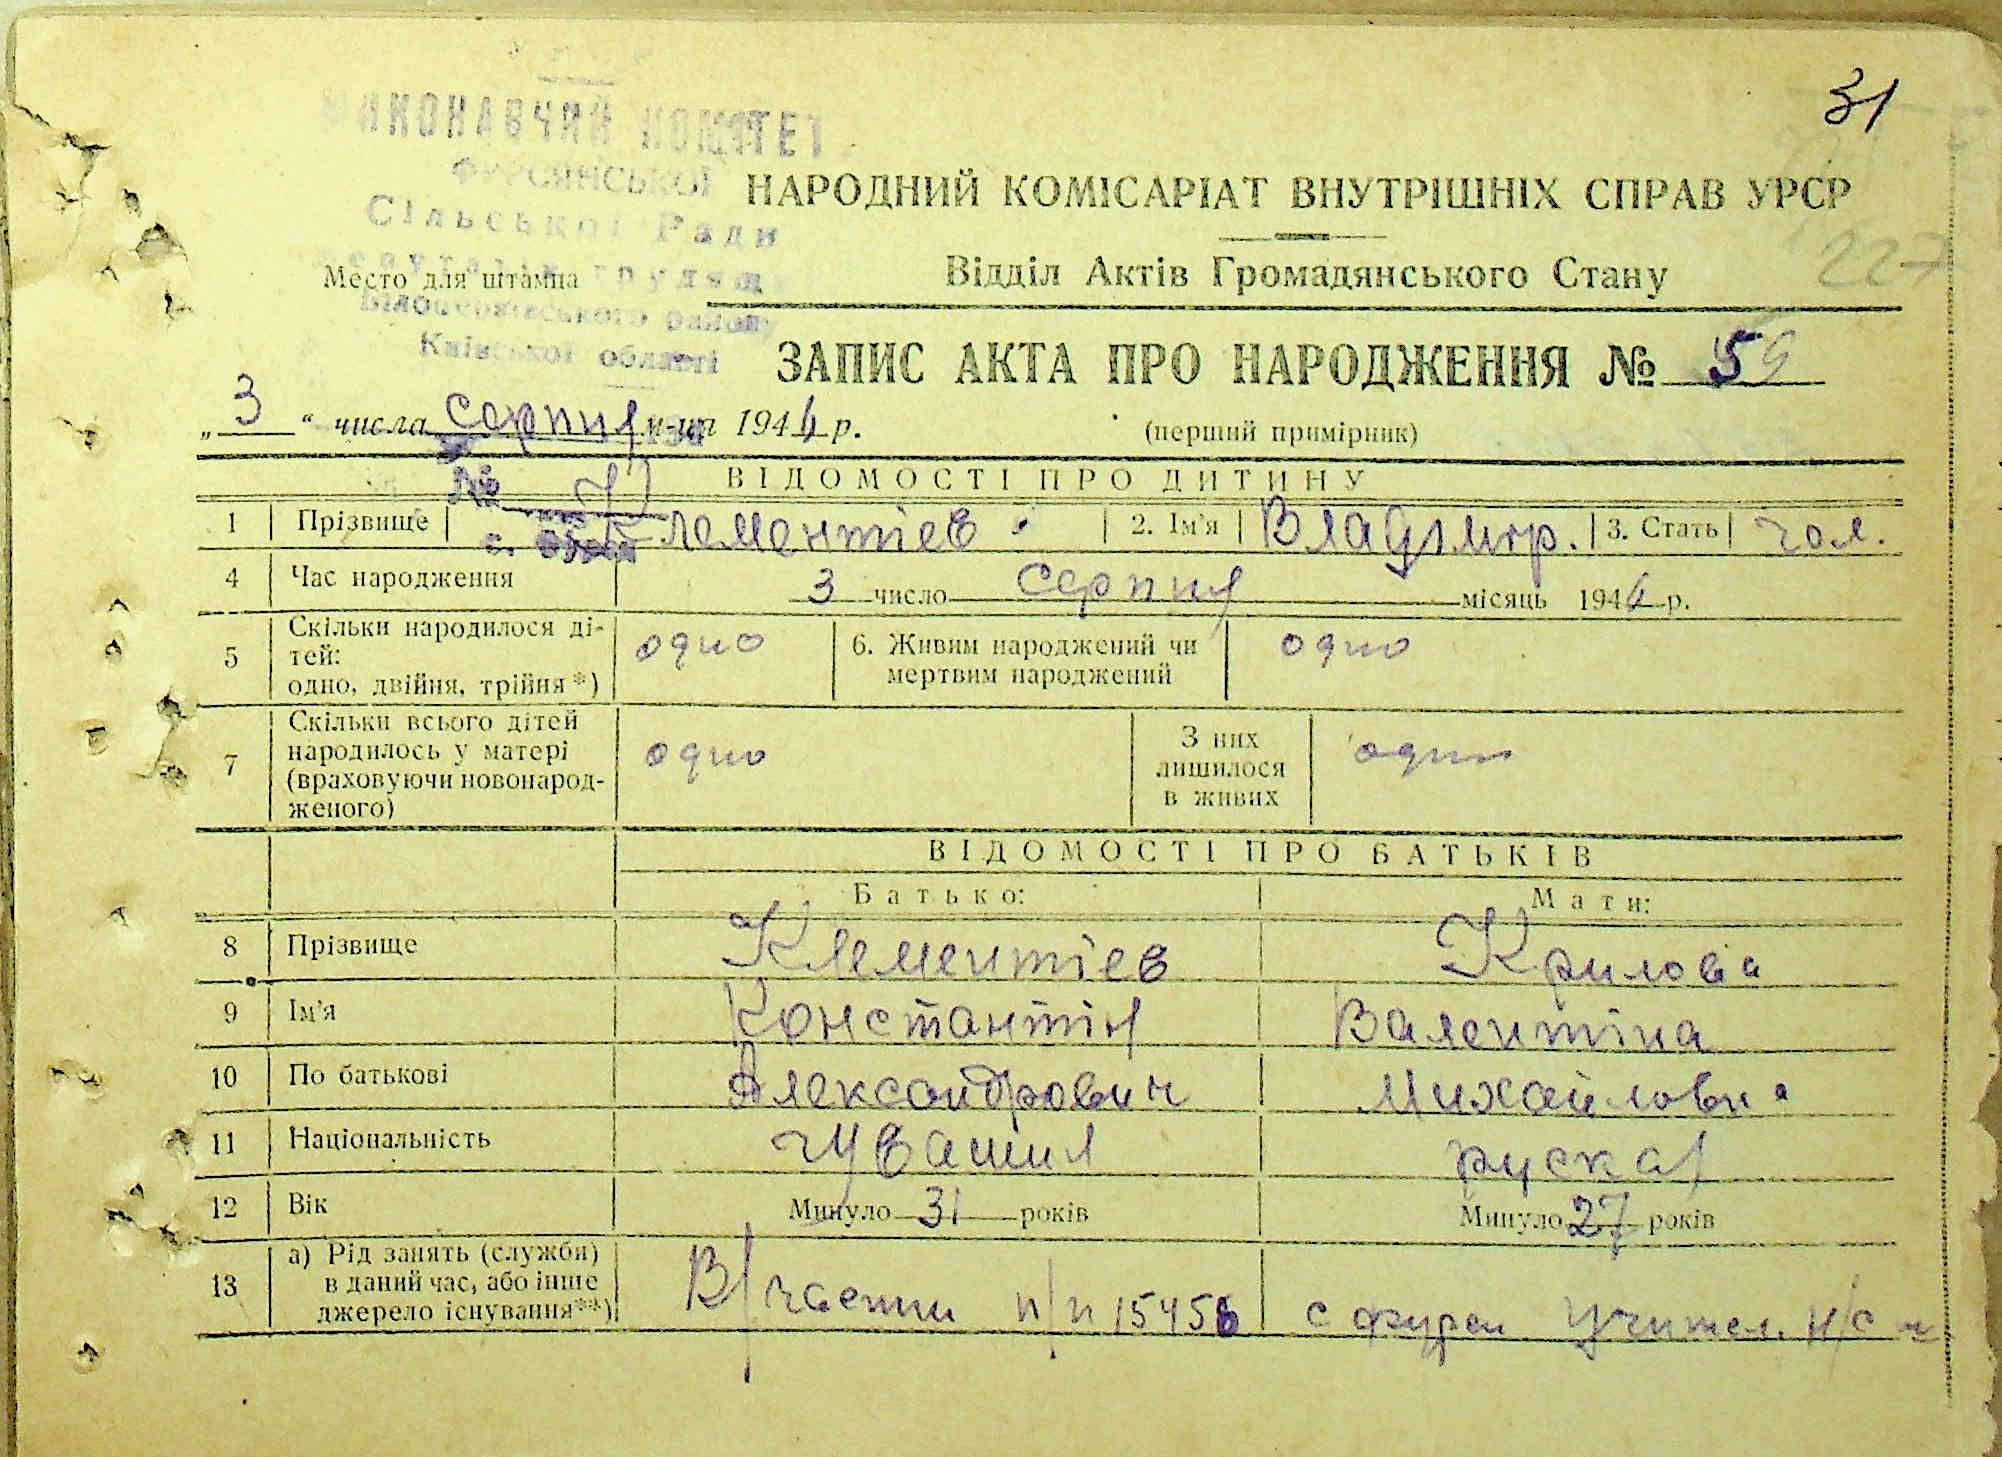 31
ВИКОНАВЧИЙ КОМІТЕТ
ФУРСЯНСЬКОЇ
Сільської Ради
Білоцерківського району
Київської області
НАРОДНИЙ КОМІСАРІАТ ВНУТРІШНІХ СПРАВ УРСР
227
Место для штампа
Відділ Актів Громадянського Стану
ЗАПИС АКТА ПРО НАРОДЖЕННЯ № 59
„3“ числа серпня м-ця 1944 р.
(перший примірник)
ВІДОМОСТІ ПРО ДИТИНУ
№
1 Прізвище Клементієв 2. Ім'я Владімір. 3. Стать чол.
4 Час народження 3 число серпня місяць 1944 р.
5 Скільки народилося ді-
тей:
одно, двійня, трійня*) одно 6. Живим народжений чи
мертвим народжений одно
7 Скільки всього дітей
народилось у матері
(враховуючи новонарод-
женого) одно З них
лишилося
в живих одно
ВІДОМОСТІ ПРО БАТЬКІВ
Батько: Мати:
8 Прізвище Клементієв Крилова
9 Ім'я Константін Валентіна
10 По батькові Александрович Михайловна
11 Національність чувашин руская
12 Вік Минуло 31 років Минуло 27 років
13 а) Рід занять (служби)
в даний час, або інше
джерело існування**) В/части п/п 15456 с Фурси учител. н/с